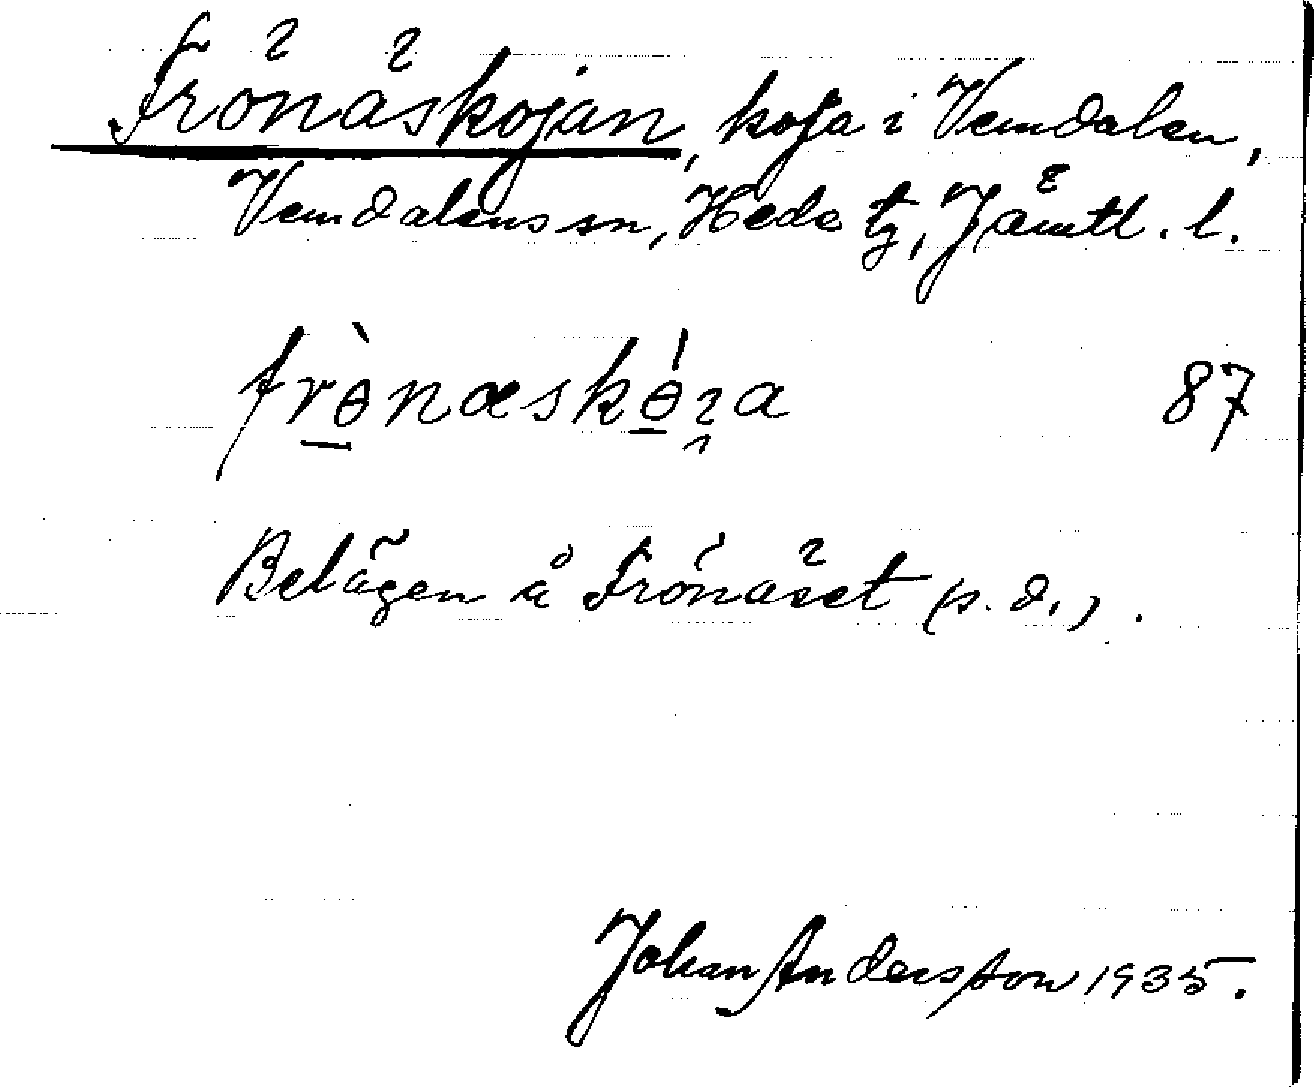 Frönäskojan, koja i Vemdalen,
Vemdalens sn, Hede tg, Jämtl. l.
frɵ̀næskɵ́ɪa 87
Belägen å Frönäset (s. d.).
Johan Andersson 1935.